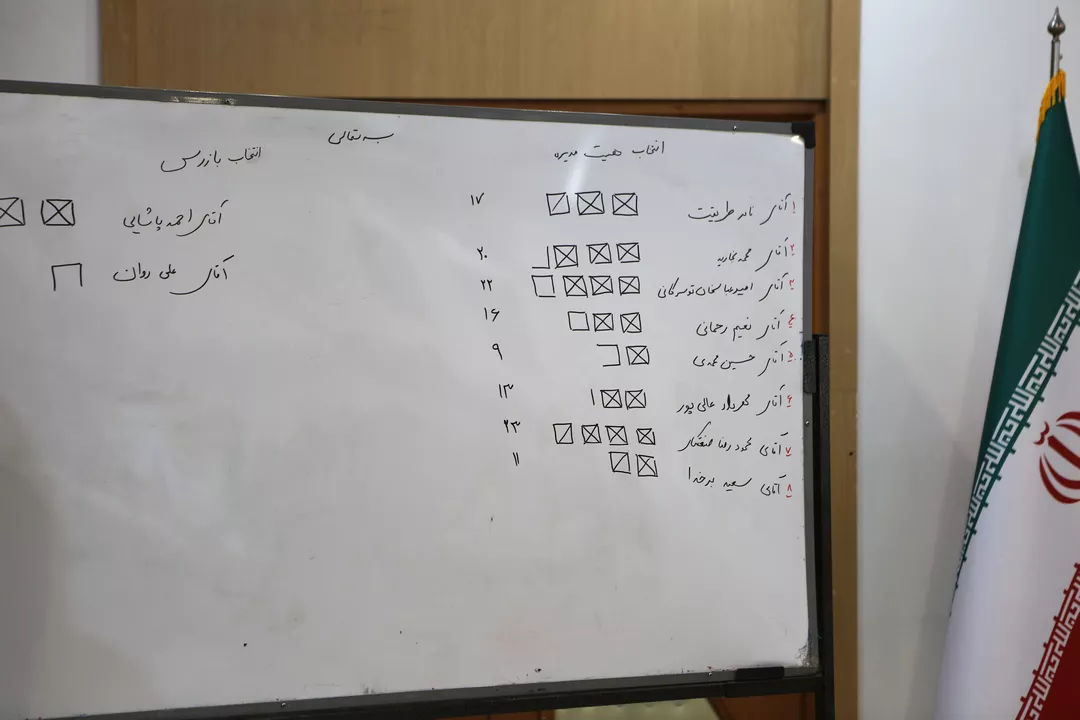 بسمه تعالی
انتخاب هیئت مدیره
۱ آقای نادر طریقت ۱۷
۲ آقای محمد نجاریه ۲۰
۳ آقای امیرعباسخان تویسرکانی ۲۲
۴ آقای نعیم رحمانی ۱۶
۵ آقای حسین محمدی ۹
۶ آقای مهرداد عالی پور ۱۳
۷ آقای محمود رضا صنعتگر ۲۳
۸ آقای سعید برخدا ۱۱
انتخاب بازرس
آقای احمد پاشایی
آقای علی روان